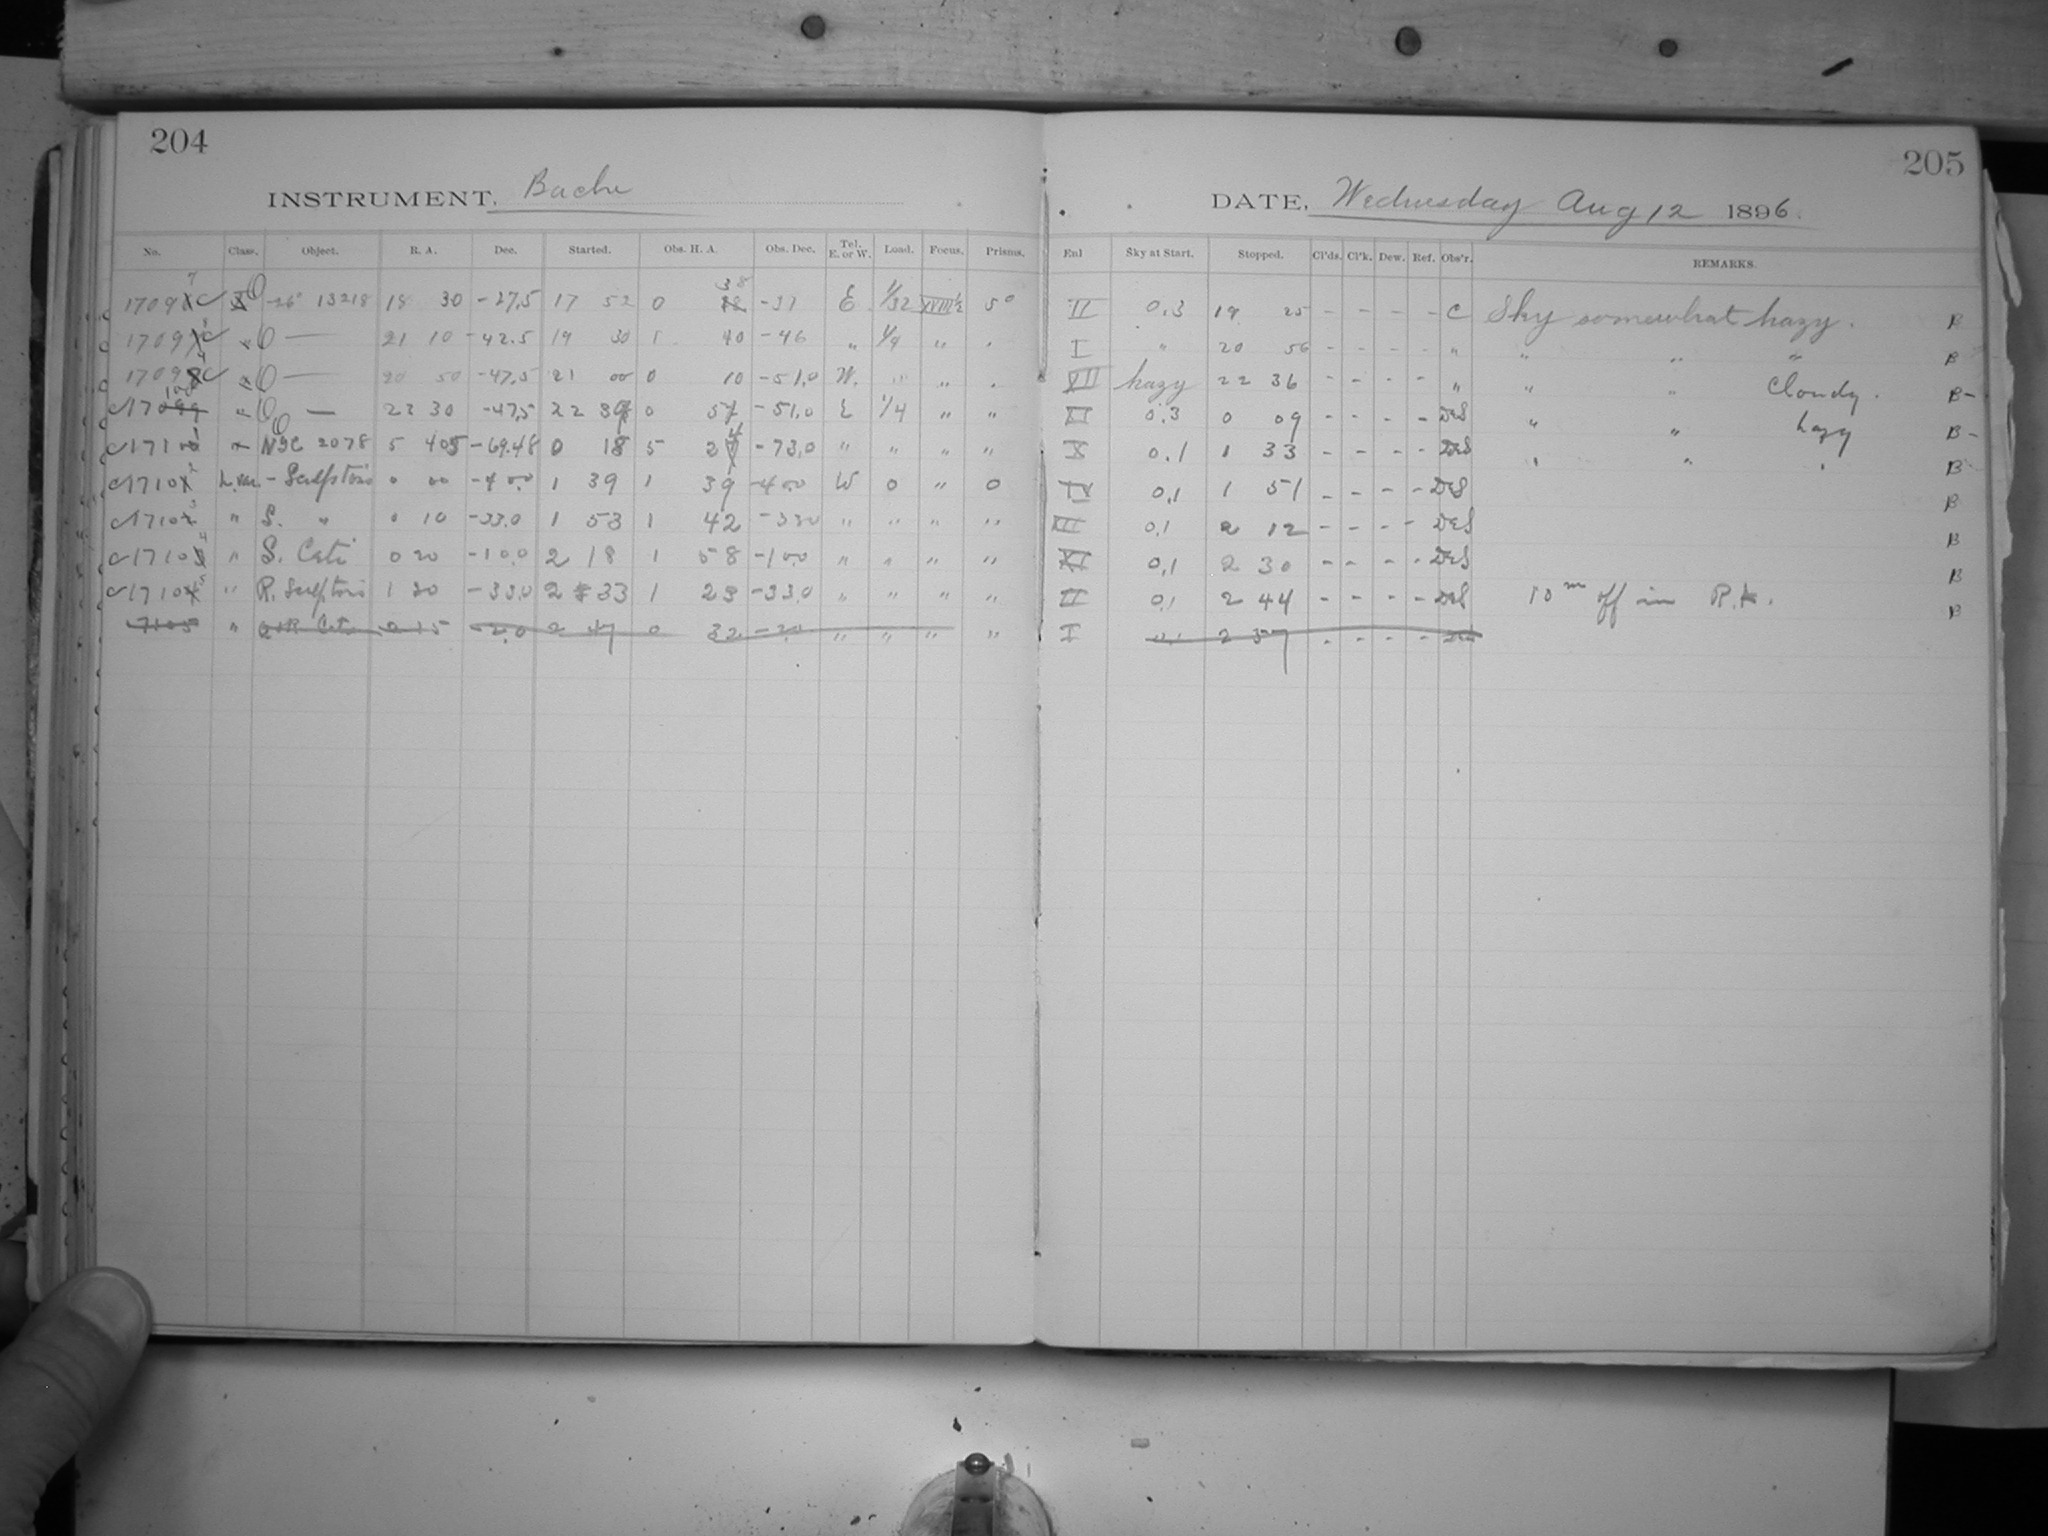 204
INSTRUMENT, Bache
No. Class. Object. R. A. Dec. Started. Obs. H. A. Obs. Dec. Tel. E. or W. Load. Focus. Prisms.
-26° 13218 18 30 -27.5 17 52 0 38 -31 E 1/32 XVIII½ 5°
O — 21 10 -42.5 19 30 1 40 -46 " 1/4 " "
O — 20 50 -47.5 21 00 0 10 -51.0 W. " " "
O — 22 30 -47.5 22 39 0 51 -51.0 E 1/4 " "
NGC 2078 5 405 -69.48 0 18 5 24 -73.0 " " " "
- Sculptoris 0 00 -40.0 1 39 1 39 -40.0 W 0 " 0
" S. " 0 10 -33.0 1 53 1 42 -33.0 " " " "
" S. Ceti 0 20 -10.0 2 18 1 58 -10.0 " " " "
" R. Sculptoris 1 20 -33.0 2 33 1 23 -33.0 " " " "
7105 " Ceti 2 15 -2.0 2 47 0 32 -2.0 " " " "
205
DATE, Wednesday Aug 12 1896.
Enl Sky at Start. Stopped. Cl'ds. Cl'k. Dew. Ref. Obs'r. REMARKS.
II 0.3 19 25 - - - - C Sky somewhat hazy. B
I " 20 56 - - - - " " " " B
VII hazy 22 36 - - - - " " " Cloudy. B-
0.3 0 09 - - - - DeS " " hazy B-
X 0.1 1 33 - - - - DeS " " " B
IV 0.1 1 51 - - - - DeS B
III 0.1 2 12 - - - - DeS B
XI 0.1 2 30 - - - - DeS B
II 0.1 2 44 - - - - DeS 10m off in R.A. B
I 0.1 2 57 - - - - DeS